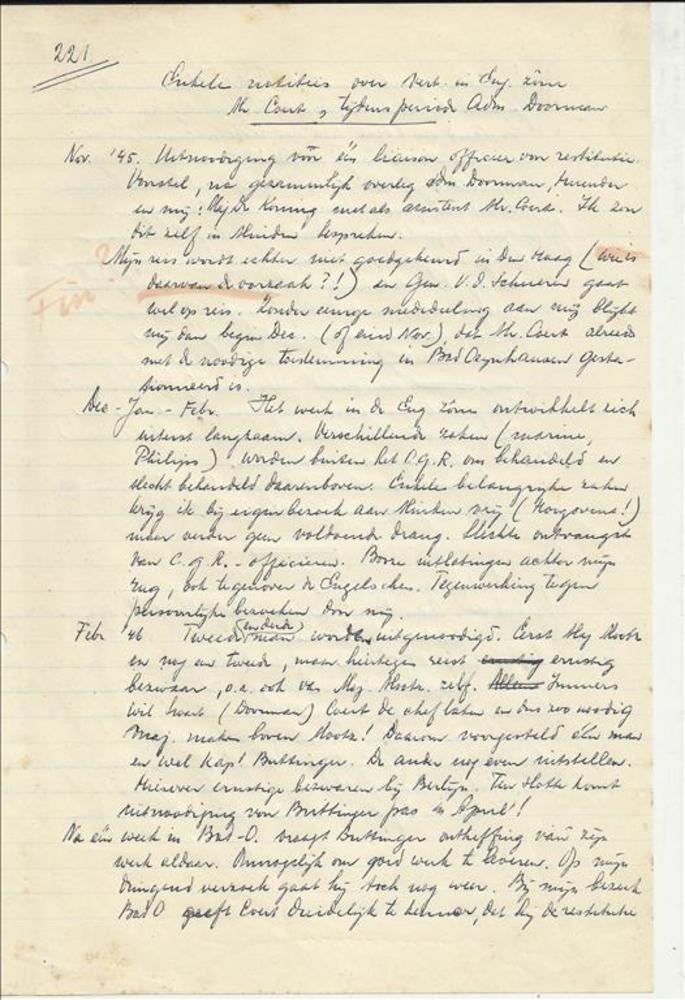 221
Enkele notities over vert. in Eng. zône
Mr Coert, tijdens periode Adm. Doorman
Nov. '45. Uitnoodiging voor één liaison officier voor restitutie.
Voorstel, na gezamenlijk overleg adm Doorman,
en mij: Maj. De Koning met als assistent Mr. Coert. Ik zou
dit zelf in Minden bespreken.
Mijn reis wordt echter niet goedgekeurd in Den Haag (wie is
daarvan de oorzaak?!) en Gen. v.d. Schueren gaat
Fin?
wel op reis. Zonder eenige mededeeling aan mij blijkt
mij dan begin Dec. (of eind Nov.), dat Mr. Coert alreeds
met de noodige toestemming in Bad Oeynhausen gesta-
tionneerd is.
Dec - Jan. - Febr. Het werk in de Eng zône ontwikkelt zich
uiterst langzaam. Verschillende zaken (marine,
Philips) worden buiten het C.G.R. om behandeld en
slecht behandeld daarenboven. Enkele belangrijke zaken
krijg ik bij eigen bezoek aan Minden vrij (Hoogovens!)
maar verder geen voldoende drang. Slechte ontvangst
van C.G.R. - officieren. Booze uitlatingen achter mijn
rug, ook tegenover de Engelschen. Tegenwerking tegen
persoonlijke bezoeken door mij.
Febr '46 Tweede (en derde) man worden uitgenoodigd. Eerst Maj
en nog een tweede, maar hiertegen reist ernstig ernstig
bezwaar, o.a. ook van Maj. zelf. Alleen Immers
wil (Doorman) Coert de chef laten en dus zoo noodig
Maj. maken boven! Daarom voorgesteld één man
en wel Kap! Buttinger. De ander nog even uitstellen.
Hierover ernstige bezwaren bij. Ten slotte komt
uitnoodiging voor Buttinger pas in April!
Na één week in Bad-O. vraagt Buttinger ontheffing van zijn
werk aldaar. Onmogelijk om goed werk te leveren. Op mijn
dringend verzoek gaat hij toch nog weer. Bij mijn bezoek
Bad O geeft Coert duidelijk te kennen, dat hij de restitutie